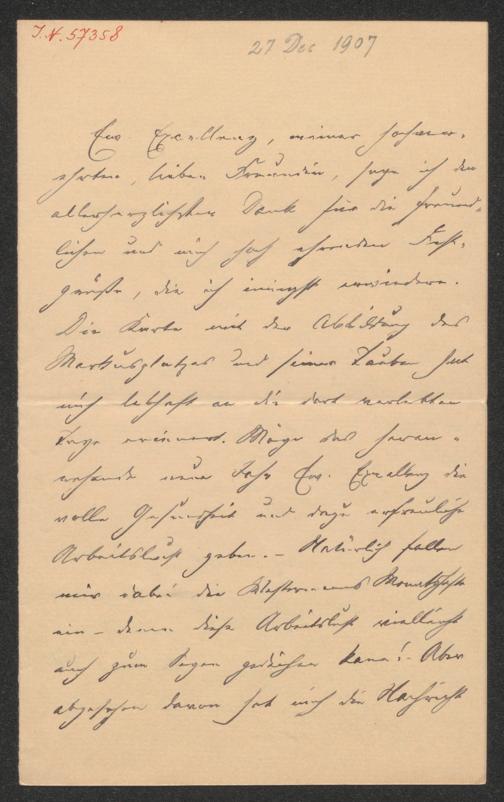 J. N. 57358
27 Dec 1907
Ew. Excellenz, meiner hochver-
ehrten, lieben Freundin, sage ich den
allerherzlichsten Dank für die freund-
lichen und mich hoch ehrenden Fest-
grüße, die ich innigst erwiedere.
Die Karte mit der Abbildung des
Markusplatzes und seiner Tauben hat
mich lebhaft an die dort verlebten
Tage erinnert. Möge das heran-
nahende neue Jahr Ew. Excellenz die
volle Gesundheit und dazu erfreuliche
Arbeitslust geben. – Natürlich fallen
mir dabei die Westermanns Monatshefte
ein – denen diese Arbeitslust vielleicht
auch zum Segen gedeihen kann! – Aber
abgesehen davon hat mich die Nachricht